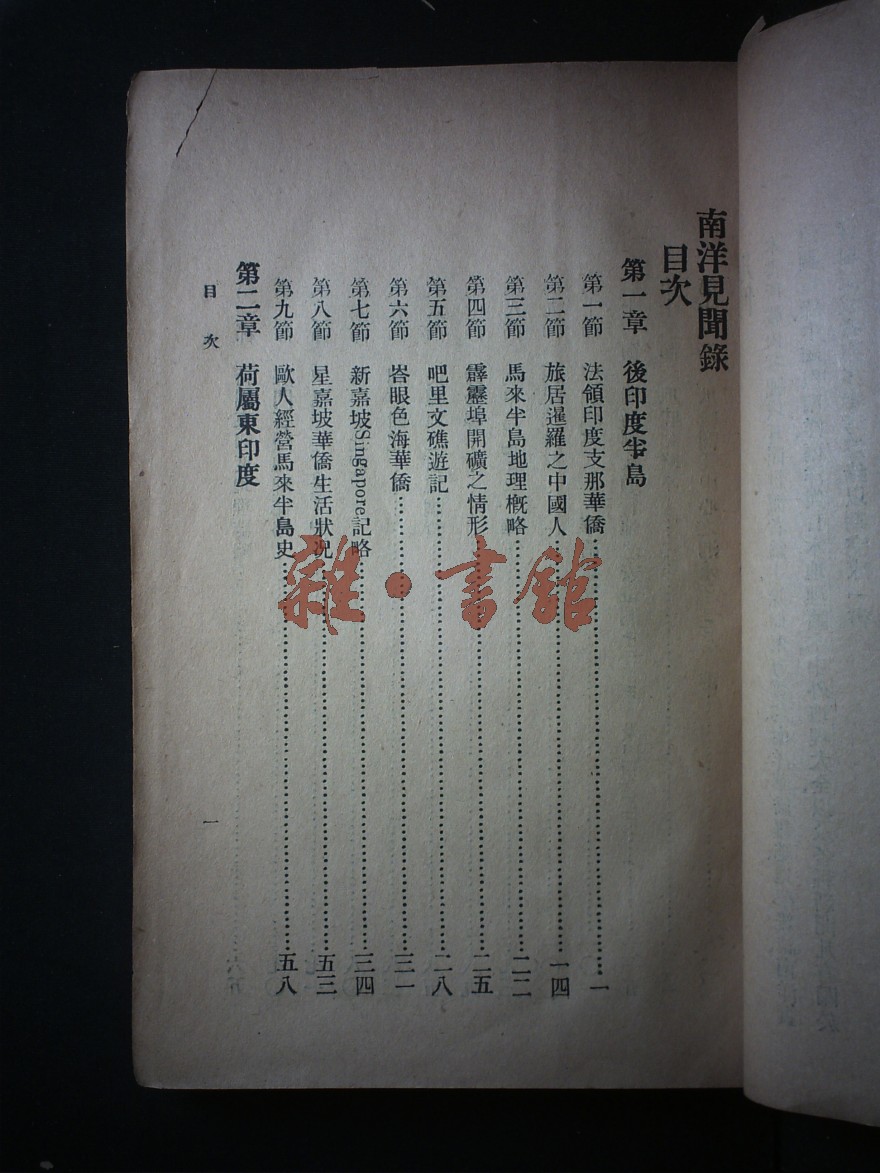 南洋見聞錄
目次
第一章　後印度半島
第一節　法領印度支那華僑……一
第二節　旅居暹羅之中國人……一四
第三節　馬來半島地理槪略……二二
第四節　霹靂埠開礦之情形……二五
第五節　吧里文礁遊記……二八
第六節　峇眼色海華僑……三一
第七節　新嘉坡Singapore記略……三四
第八節　星嘉坡華僑生活狀况……五三
第九節　歐人經營馬來半島史……五八
第二章　荷屬東印度
目次
一
雜·書館